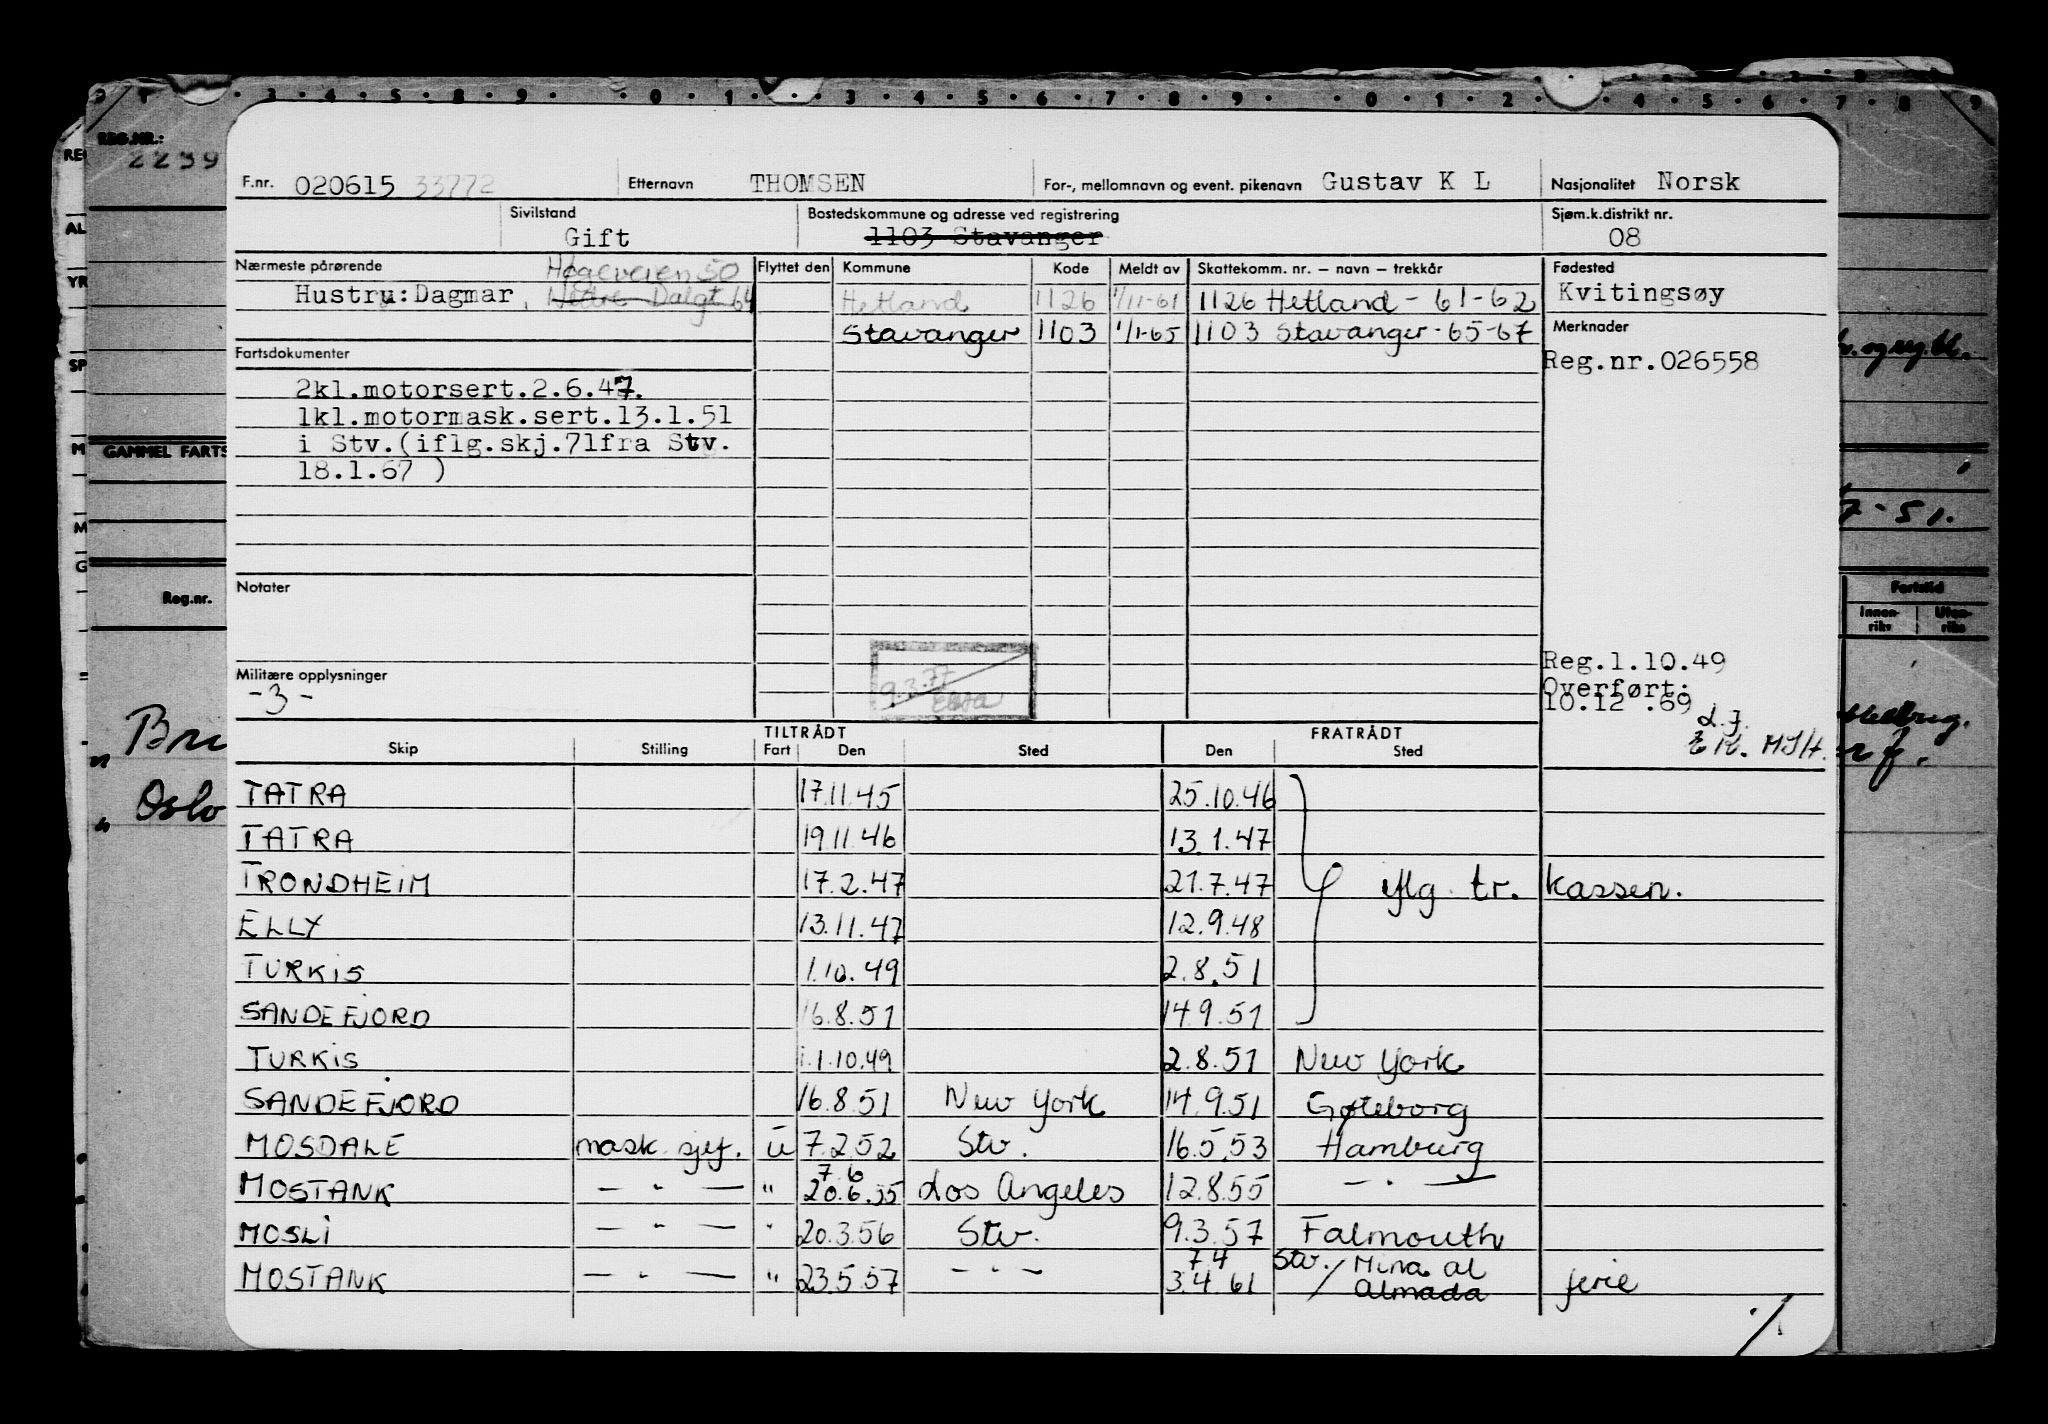 REG.NR.:
2299
F.nr. 020615 33772 Etternavn THOMSEN For-, mellomnavn og event. pikenavn Gustav K L Nasjonalitet Norsk
Sivilstand Bostedskommune og adresse ved registrering Sjøm.k.distrikt nr.
Gift 1103 Stavanger 08
Nærmeste pårørende Flyttet den Kommune Kode Meldt av Skattekomm. nr. – navn – trekkår Fødested
Hustru: Dagmar, Hetland 1126 1/11-61 1126 Hetland - 61-62 Kvitingsøy
Stavanger 1103 1/1-65 1103 Stavanger - 65-67 Merknader
Fartsdokumenter
Reg.nr.026558
2kl.motorsert.2.6.47.
1kl.motormask.sert.13.1.51
i Stv.(iflg.skj.71fra Stv.
18.1.67 )
GAMMEL FARTS
7-51.
Notater
Reg.nr.
Fartstid
Innen-riks Uten-riks
Militære opplysninger
-3-
9.3.77
Reg.1.10.49
Overført:
10.12.69
Oslo
TILTRÅDT FRATRÅDT
Skip Stilling Fart Den Sted Den Sted
TATRA 17.11.45 25.10.46
TATRA 19.11.46 13.1.47
TRONDHEIM 17.2.47 21.7.47 iflg tr. kassen.
ELLY 13.11.47 12.9.48
TURKIS 1.10.49 2.8.51
SANDEFJORD 16.8.51 14.9.51
TURKIS 1.10.49 2.8.51 New York
SANDEFJORD 16.8.51 New York 14.9.51 Gøteborg
MOSDALE mask.sjef. U 7.2.52 Stv. 16.5.53 Hamburg
7 6
MOSTANK — " — " 20.6.55 Los Angeles 12.8.55 — " —
MOSLI — " — " 20.3.56 Stv. 9.3.57 Falmouth
7 4 Stv. / Mina al
MOSTANK — " — " 23.5.57 — " — 3.4.61 Almada ferie